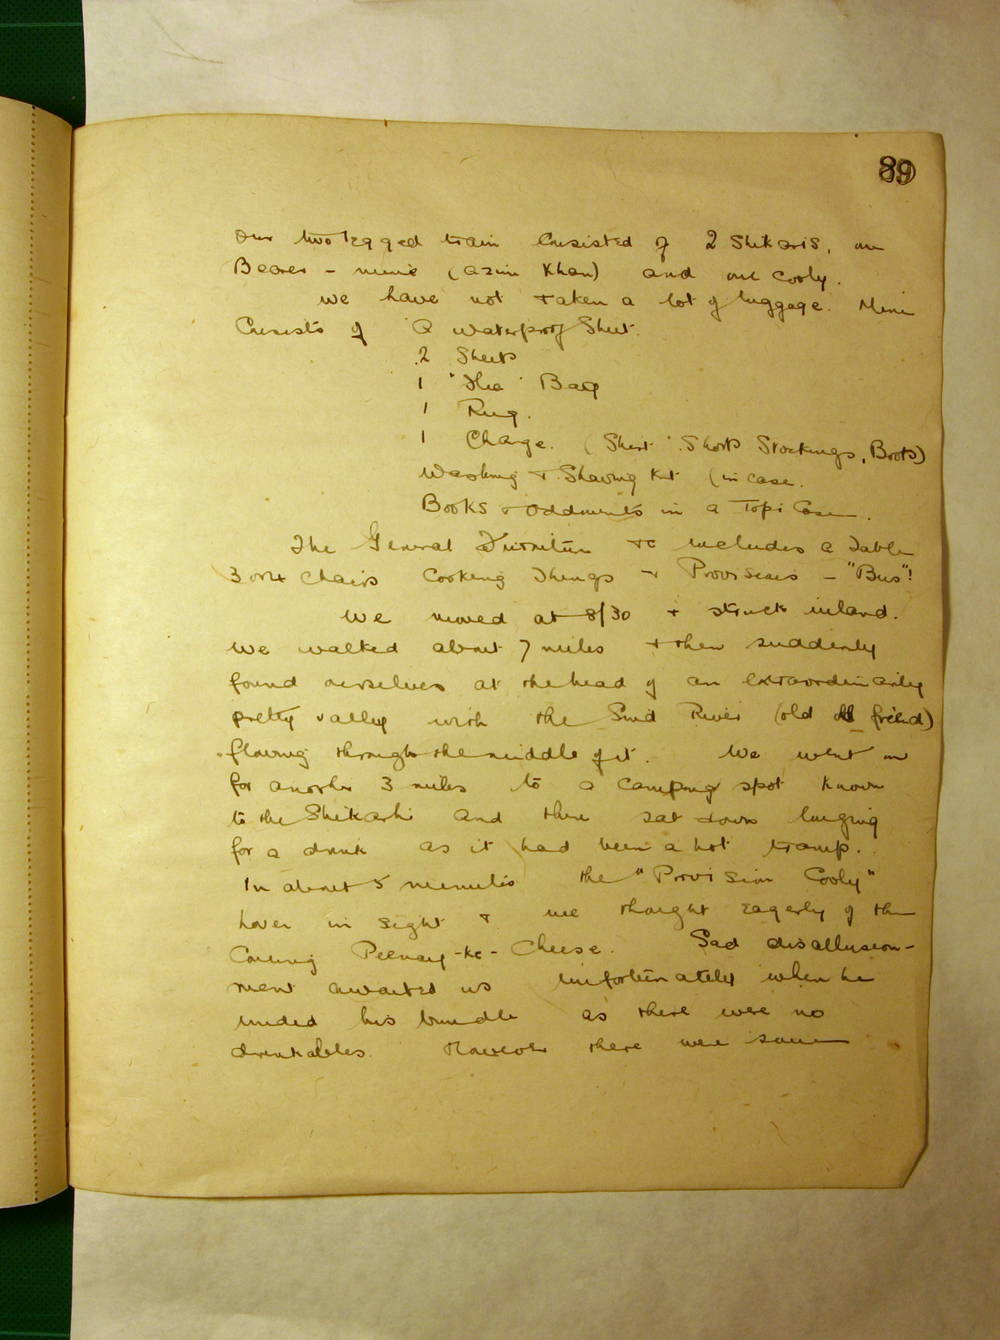 89
Our two legged train consisted of 2 Shikaris, one
Bearer - mine (Azim Khan) and one Cooly.
We have not taken a lot of luggage. Mine
Consists of A waterproof Sheet.
2 Sheets
1 "Flea" Bag
1 Rug.
1 Change. (Shirt Shorts Stockings, Boots)
Washing + Shaving Kit (in case.
Books + oddments in a Topi Case.
The General Furniture etc includes a Table
3 or 4 Chairs Cooking Things + Provisions - "Bus"!
We moved at 8/30 + struck inland.
We walked about 7 miles + then suddenly
found ourselves at the head of an extraordinarily
pretty valley with the Sind River (old friend)
flowing through the middle of it. We went on
for another 3 miles to a camping spot known
to the Shikarhi and there sat down longing
for a drink as it had been a hot tramp.
In about 5 minutes the "Provision Cooly"
hover in sight + we thought eagerly of the
Coming -ke- Cheese. Sad disallusion-
ment awaited us unfortunately when he
undid his bundle as there were no
drinkables. However there were some